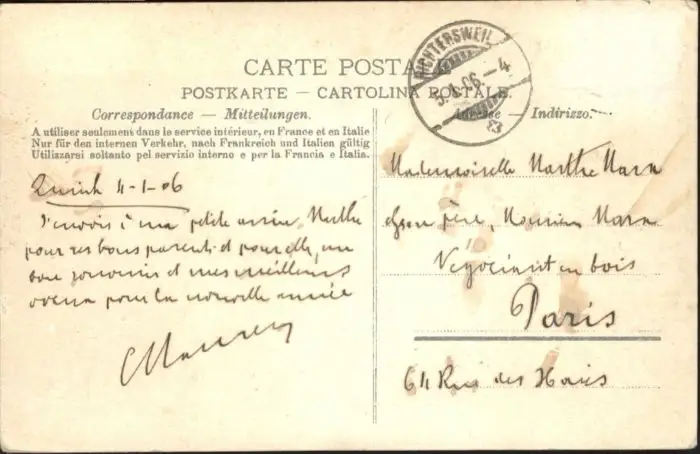 CARTE POSTA
POSTKARTE — CARTOLINA POSTALE.
Correspondance — Mitteilungen.
A utiliser seulement dans le service intérieur, en France et en Italie
Nur für den internen Verkehr, nach Frankreich und Italien gültig
Utilizzarsi soltanto pel servizio interno e per la Francia e Italia.
Zurich 4-1-06
J'envois à ma petite amie, Marthe
pour ses bons parents et pour elle, un
bon souvenir et mes meilleurs
voeux pour la nouvelle année
RICHTERSWEIL
5.I.06.-4
Adresse — Indirizzo.
Mademoiselle Marthe
chez son père, Monsieur
Négociant en bois
Paris
64 Rue des